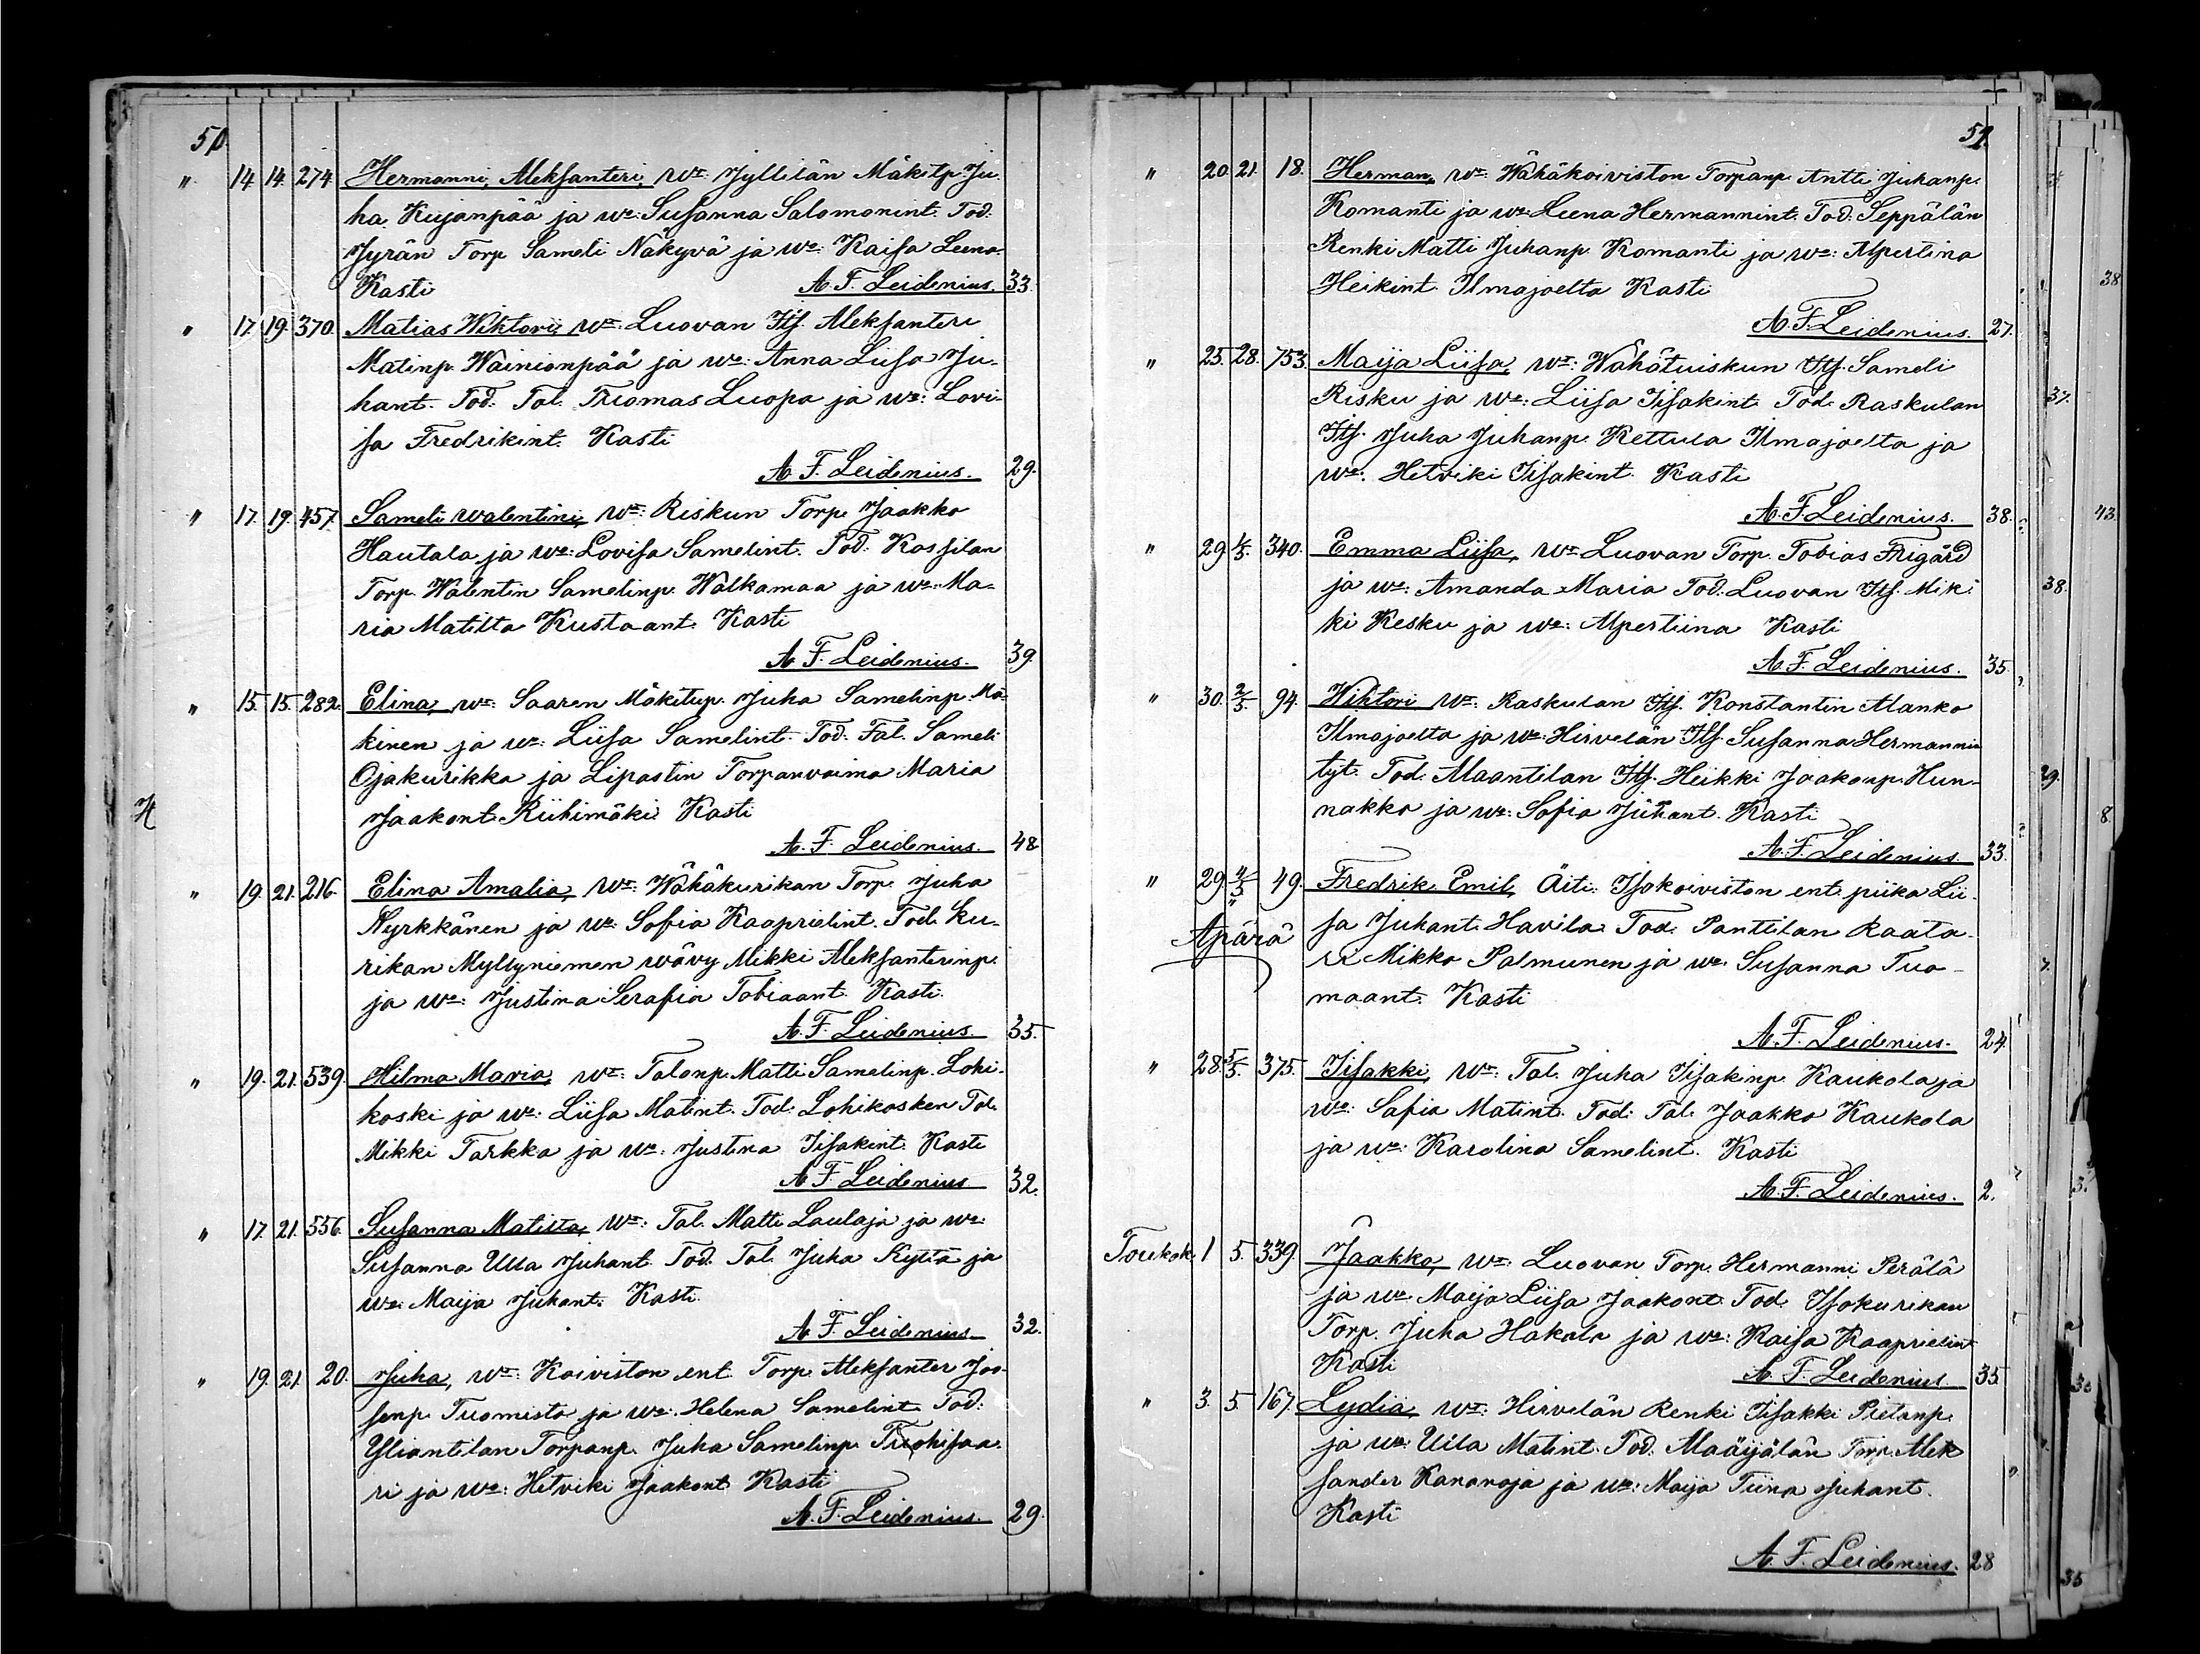 50
" 14 14. 274 Hermanni Aleksanteri, wt: Jyllilän Mäkitp. Ju
ha Kujanpää ja wo: Susanna Salomonint. Tod.
Jyrän Torp Sameli Näkyvä ja wo: Kaisa Leena.
Kasti A. F. Leidenius. 33.
" 17 19. 370. Matias Wihtori wt: Luovan Its. Aleksanteri
Matinp. Wainionpää ja wo: Anna Liisa Ju-
hant. Tod: Tal: Tuomas Luopa ja wo: Lovi-
sa Fredrikint. Kasti
A. F. Leidenius. 29.
" 17. 19. 457. Sameli Walentini, wt: Riskun Torp. Jaakko
Hautala ja wo: Lovisa Samelint. Tod: Kassilan
Torp. Walentin Samelinp. Walkamaa ja wo: Ma-
ria Matilta Kustaant. Kasti
A. F. Leidenius. 39.
" 15. 15. 282. Elina, wt: Saaren Mäkitup. Juha Samelinp. Mä-
kinen ja wo: Liisa Samelint. Tod: Tal. Sameli
Ojakurikka ja Lipastin Torpanvaimo Maria
H
Jaakont. Riihimäki Kasti
A. F. Leidenius. 48
" 19. 21. 216. Elina Amalia, wt: Wähäkurikan Torp. Juha
Nyrkkänen ja wo: Sofia Kaaprielint. Tod. Ku-
rikan Myllyniemen wävy Mikki Aleksanterinp.
ja wo: Justina Serafia Tobiaant. Kasti.
A. F. Leidenius. 35.
" 19. 21. 539. Hilma Maria, wt: Talonp. Matti Samelinp. Lohi-
koski ja wo: Liisa Matint. Tod: Lohikosken Tal.
Mikki Tarkka ja wo: Justina Iisakint. Kasti
A. F. Leidenius 32.
" 17. 21. 556. Susanna Matilta, wt: Tal. Matti Laulaja ja wo:
Susanna Ulla Juhant. Tod. Tal. Juha Kyttä ja
wo: Maija Juhant. Kasti.
A. F. Leidenius 32.
" 19. 21. 20. Juha, wt: Koiviston ent. Torp. Aleksanter Joo-
senp. Tuomisto ja wo: Helena Samelint. Tod:
Yliantilan Torpanp. Juha Samelinp. Tuohisaa-
ri ja wo: Hetviki Jaakont. Kasti
A. F. Leidenius. 29.
51.
" 20. 21. 18. Herman, wt: Wähäkoiviston Torpanp. Antti Juhanp.
Komanti ja wo: Leena Hermannint. Tod: Seppälän
Renki Matti Juhanp. Komanti ja wo: Alpertina
Heikint. Ilmajoelta Kasti
A. F. Leidenius. 27.
" 25. 28. 753. Maija Liisa, wt: Wähätuiskun Its. Sameli
Risku ja wo: Liisa Iisakint. Tod. Raskulan
Its. Juha Juhanp. Kettula Ilmajoelta ja
wo: Hetviki Iisakint. Kasti
A. F. Leidenius. 38.
" 29 1/5. 340. Emma Liisa, wt: Luovan Torp. Tobias Frigård
ja wo: Amanda Maria Tod: Luovan Its. Mik-
ki Kesku ja wo: Alpertiina Kasti
A. F. Leidenius. 35.
" 30. 2/5 94. Wihtori wt: Raskulan Its. Konstantin Alanko
Ilmajoelta ja wo: Hirvelän Its. Susanna Hermannin
tyt. Tod: Maantilan Its. Heikki Jaakonp. Hun-
nakko ja wo: Sofia Juhant. Kasti
A. F. Leidenius 33.
" 29. 4/5 49. Fredrik Emil, Äiti: Isokoiviston ent. piika Lii-
Äpärä
sa Juhant. Havila. Tod: Panttilan Räätä-
li Mikko Palmunen ja wo: Susanna Tuo-
maant. Kasti
A. F. Leidenius. 24.
" 28. 5/5. 375. Iisakki, wt: Tal. Juha Iisakinp. Kaukola ja
wo: Sofia Matint. Tod: Tal. Jaakko Kaukola
ja wo: Karolina Samelint. Kasti
A. F. Leidenius. 2.
Toukok. 1 5. 339. Jaakko, wt: Luovan Torp. Hermanni Perälä
ja wo: Maija Liisa Jaakont. Tod: Isokurikan
Torp. Juha Hakala ja wo: Kaisa Kaaprielint
Kasti A. F. Leidenius 35
" 3. 5. 167. Lydia, wt: Hirvelän Renki Iisakki Pietarinp.
ja wo: Ulla Matint. Tod. Määijälän Torp. Alek
sander Kananoja ja wo: Maija Tiina Juhant.
Kasti
A. F. Leidenius. 28